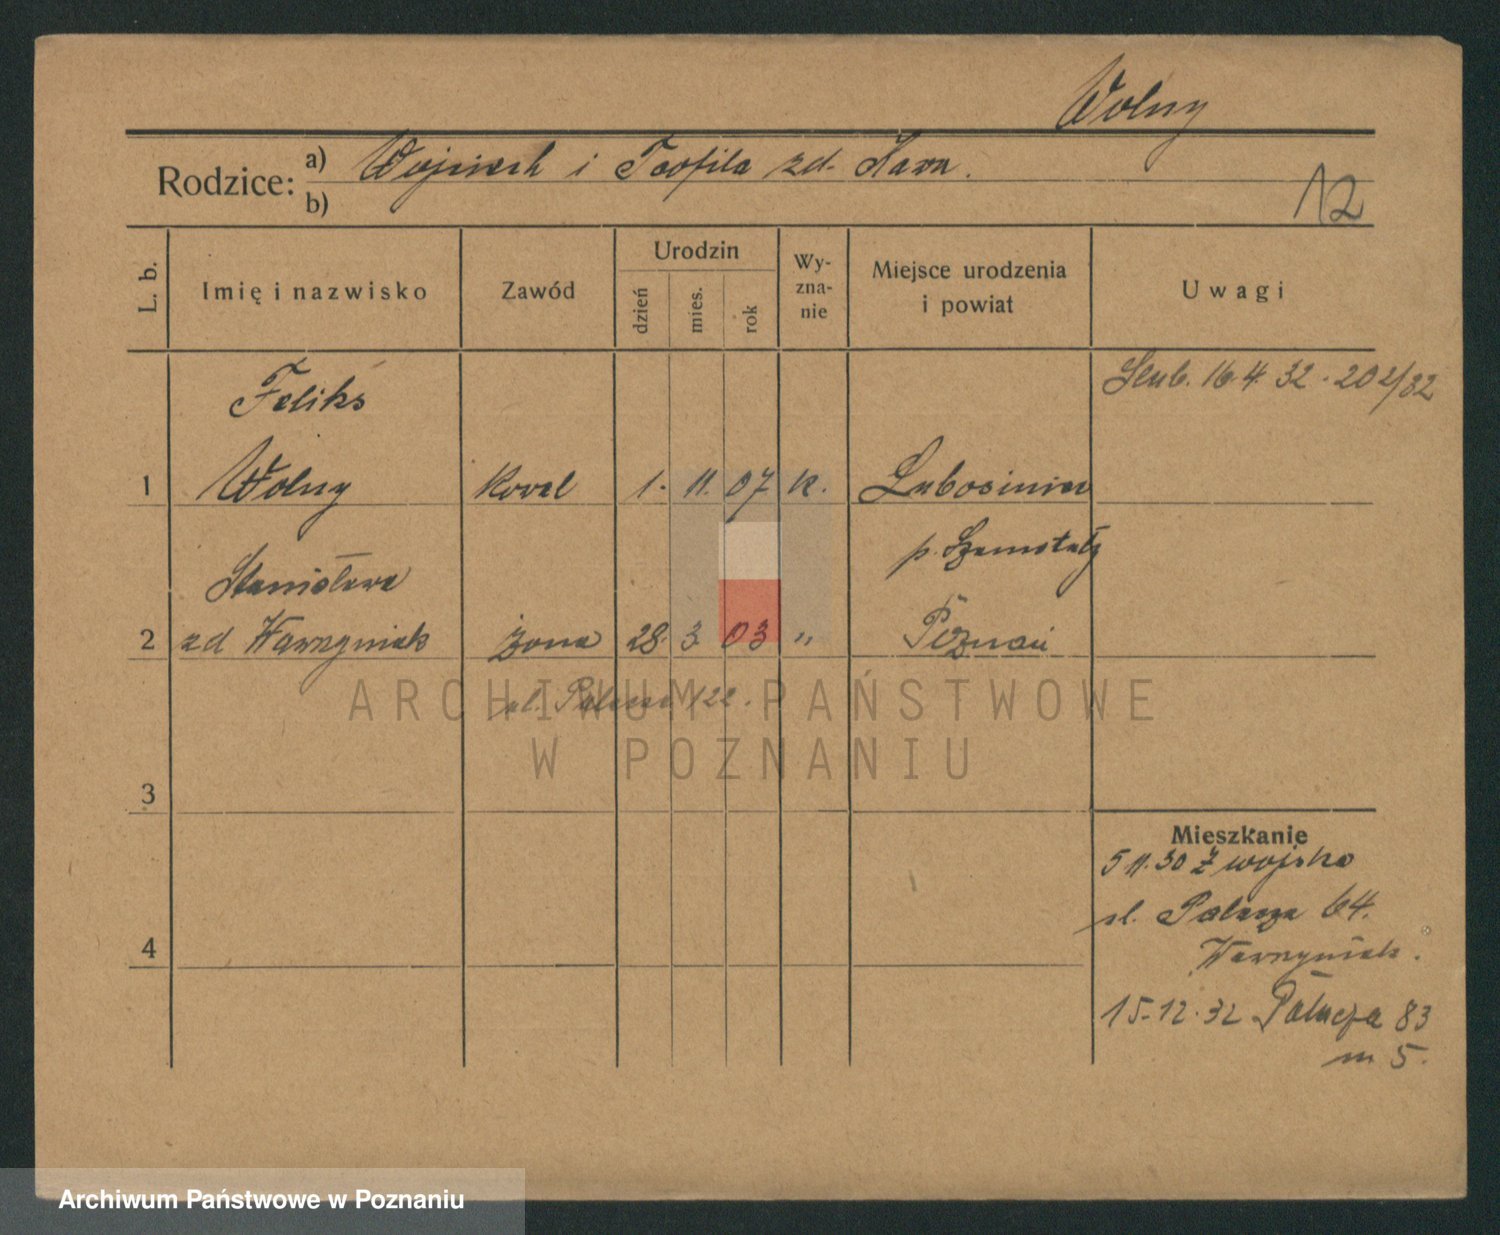 Wolny
Rodzice:
a) Wojciech i Teofila zd. Kawa.
b)
12
L. b.
Imię i nazwisko
Zawód
Urodzin
dzień
mies.
rok
Wy-
zna-
nie
Miejsce urodzenia
i powiat
Uwagi
Feliks
Ślub. 16.4.32. 202/32
1 Wolny Kowal 1. 11. 07 k.
p. Szamotuły
Stanisława
2 zd Wawrzyniak żona 28. 3 03 " Poznań
ul. 122.
ARCHIWUM PAŃSTWOWE
W POZNANIU
3
Mieszkanie
5 11.30 Z wojska
ul. Palacza 64.
4
Wawrzyniak.
15.12.32 Palacza 83
m 5.
Archiwum Państwowe w Poznaniu